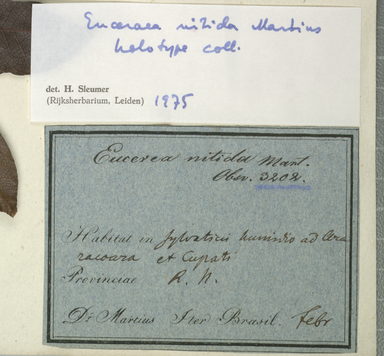 Euceraea nitida Martius
holotype coll.
det. H. Sleumer
(Rijksherbarium, Leiden) 1975
Eucerea nitida Mart.
Obser. 3202.
Habitat in sylvaticis humidis ad Ara
racoara et Cupati
Provinciae R. N.
Dr Martius Iter Brasil. Febr